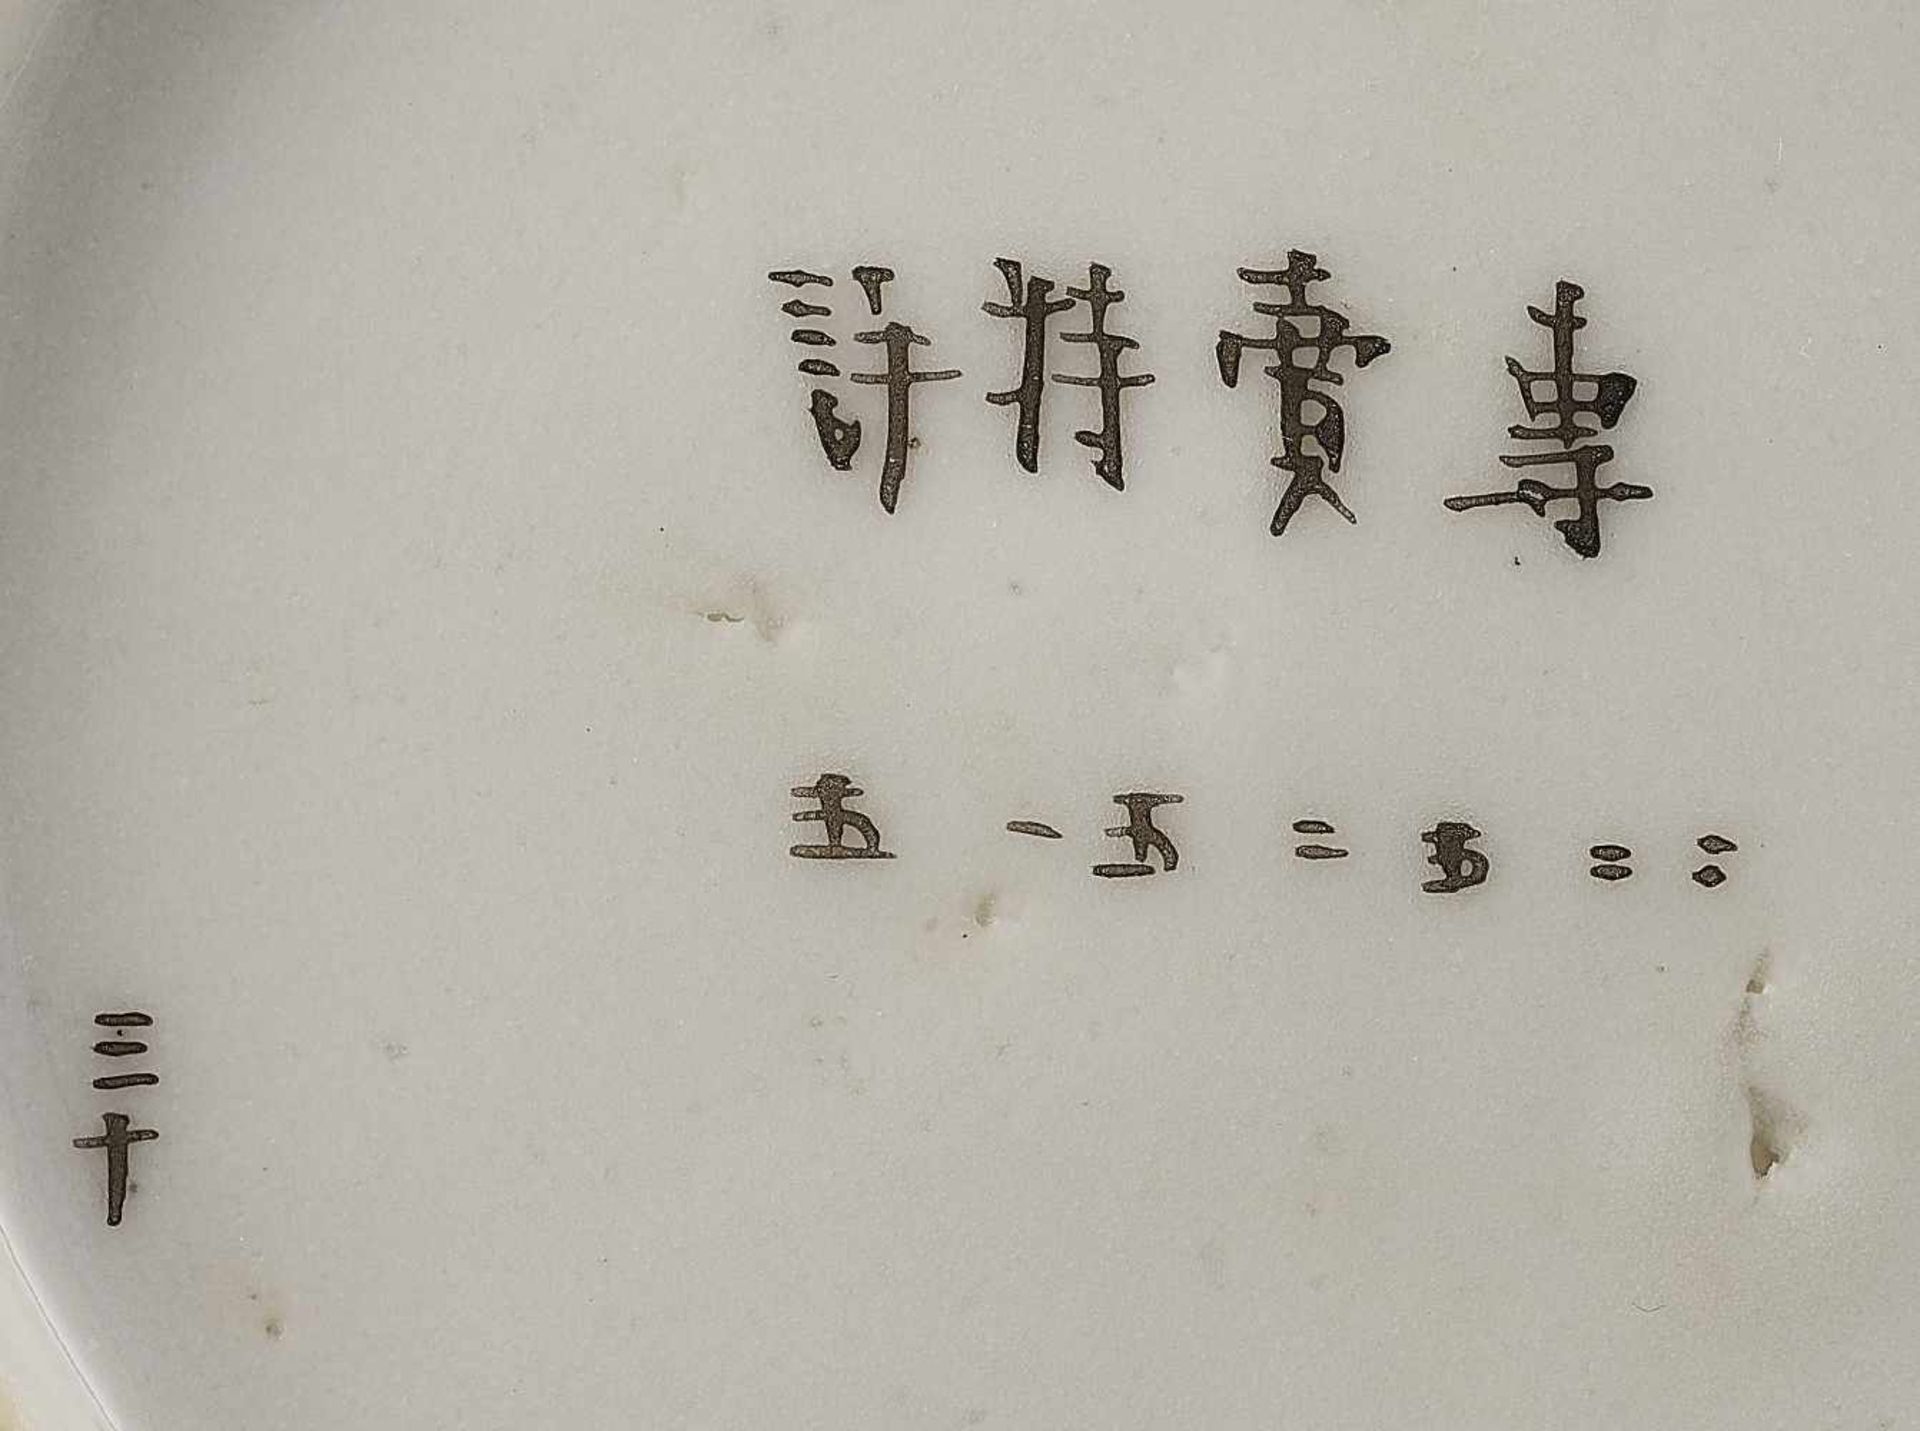 專賣特許
二五二五一五
三十